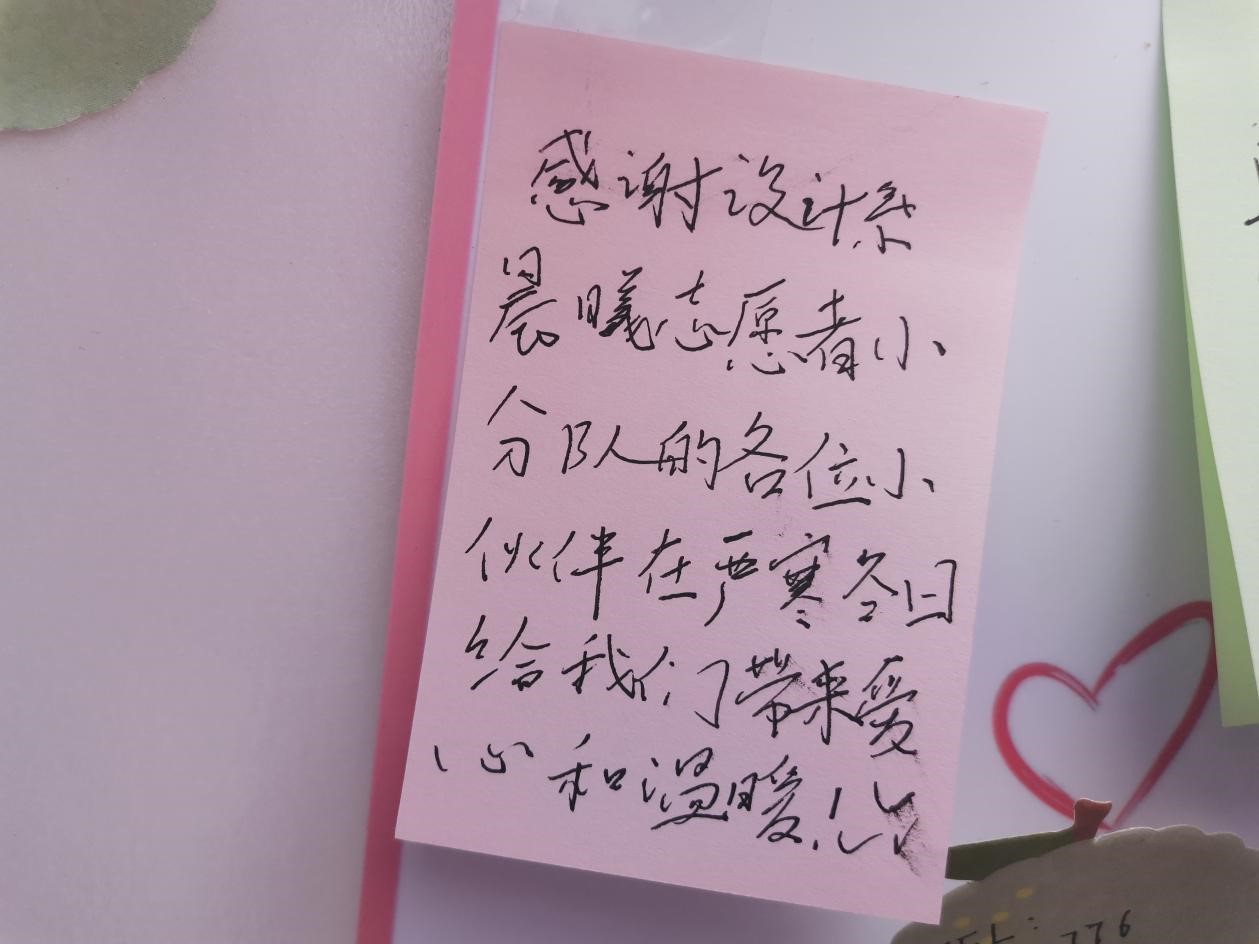 感谢设计系
晨曦志愿者小
分队的各位小
伙伴在严寒冬日
给我们带来爱
心和温暖!
776